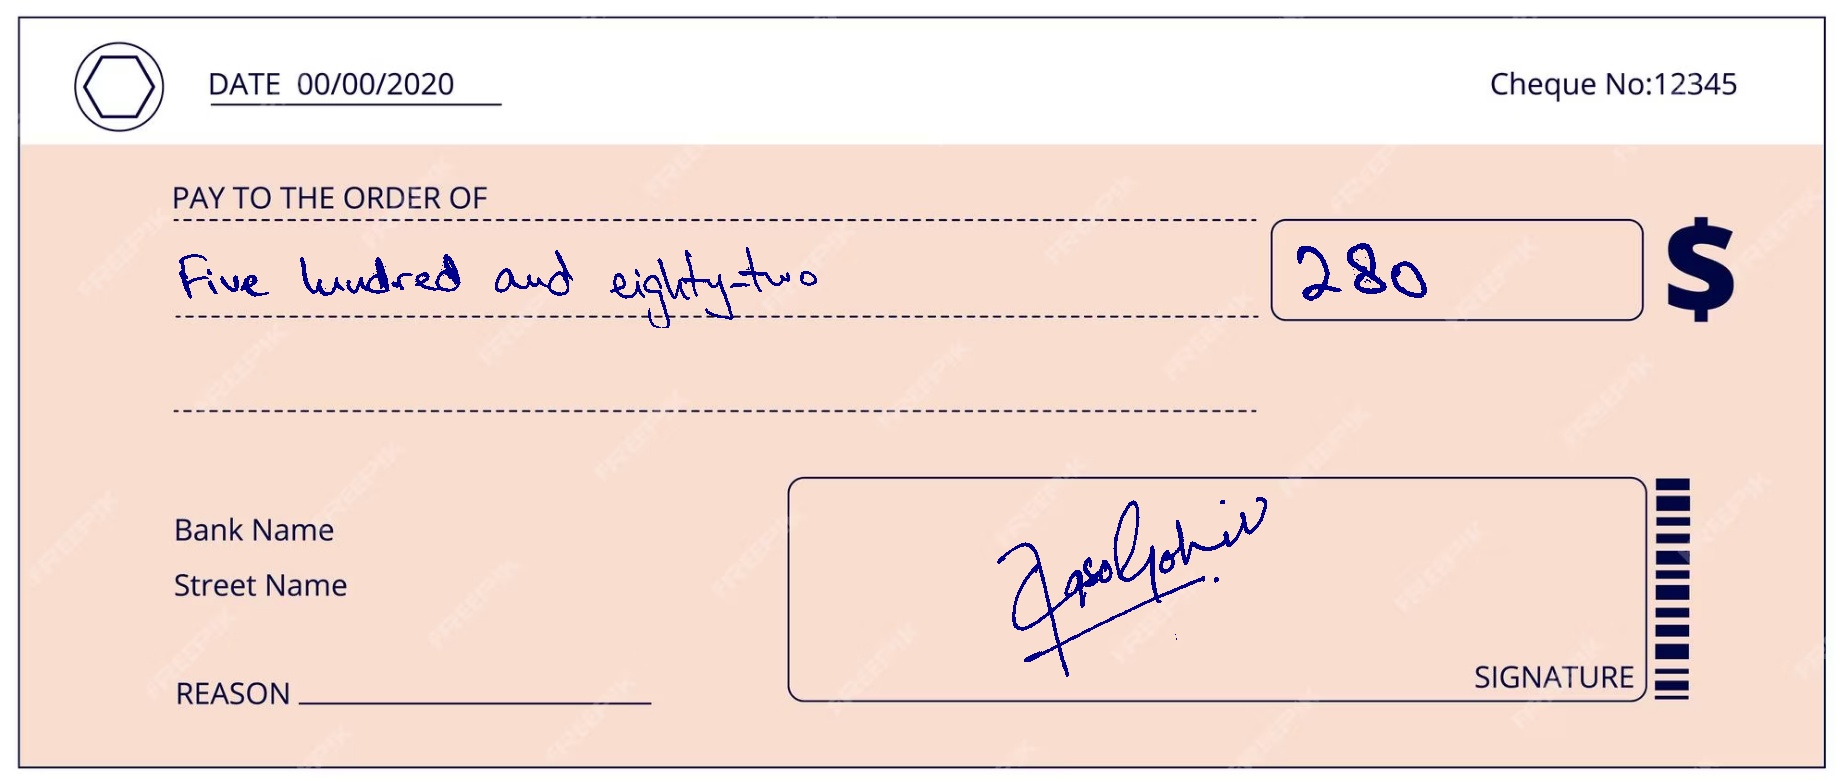 DATE 00/00/2020
Cheque No:12345
PAY TO THE ORDER OF
Five hundred and eighty-two
280
$
Bank Name
Street Name
REASON
SIGNATURE
FREEPIK